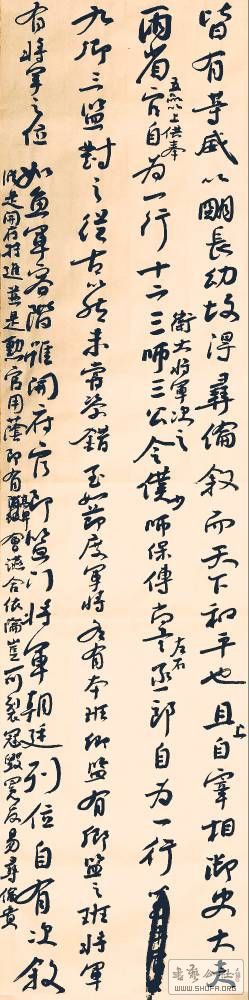 皆有等威以明長幼故得彝倫叙而天下和平也且上自宰相御史大夫
兩省五品以上供奉官自為一行十二衛大將軍次之三師三公令僕少師保傅尚書左右丞侍郎自為一行
九卿三監對之從古以然未嘗參錯至如節度軍將各有本班卿監有卿監之班將軍
有將軍之位如魚軍容階雖開府官即監門將軍朝廷列位自有次叙
從是開府特進並是勳官用蔭即有高卑會讌合依倫豈可裂冠毀冕反易彝倫貴
WWW.SHUFA.ORG